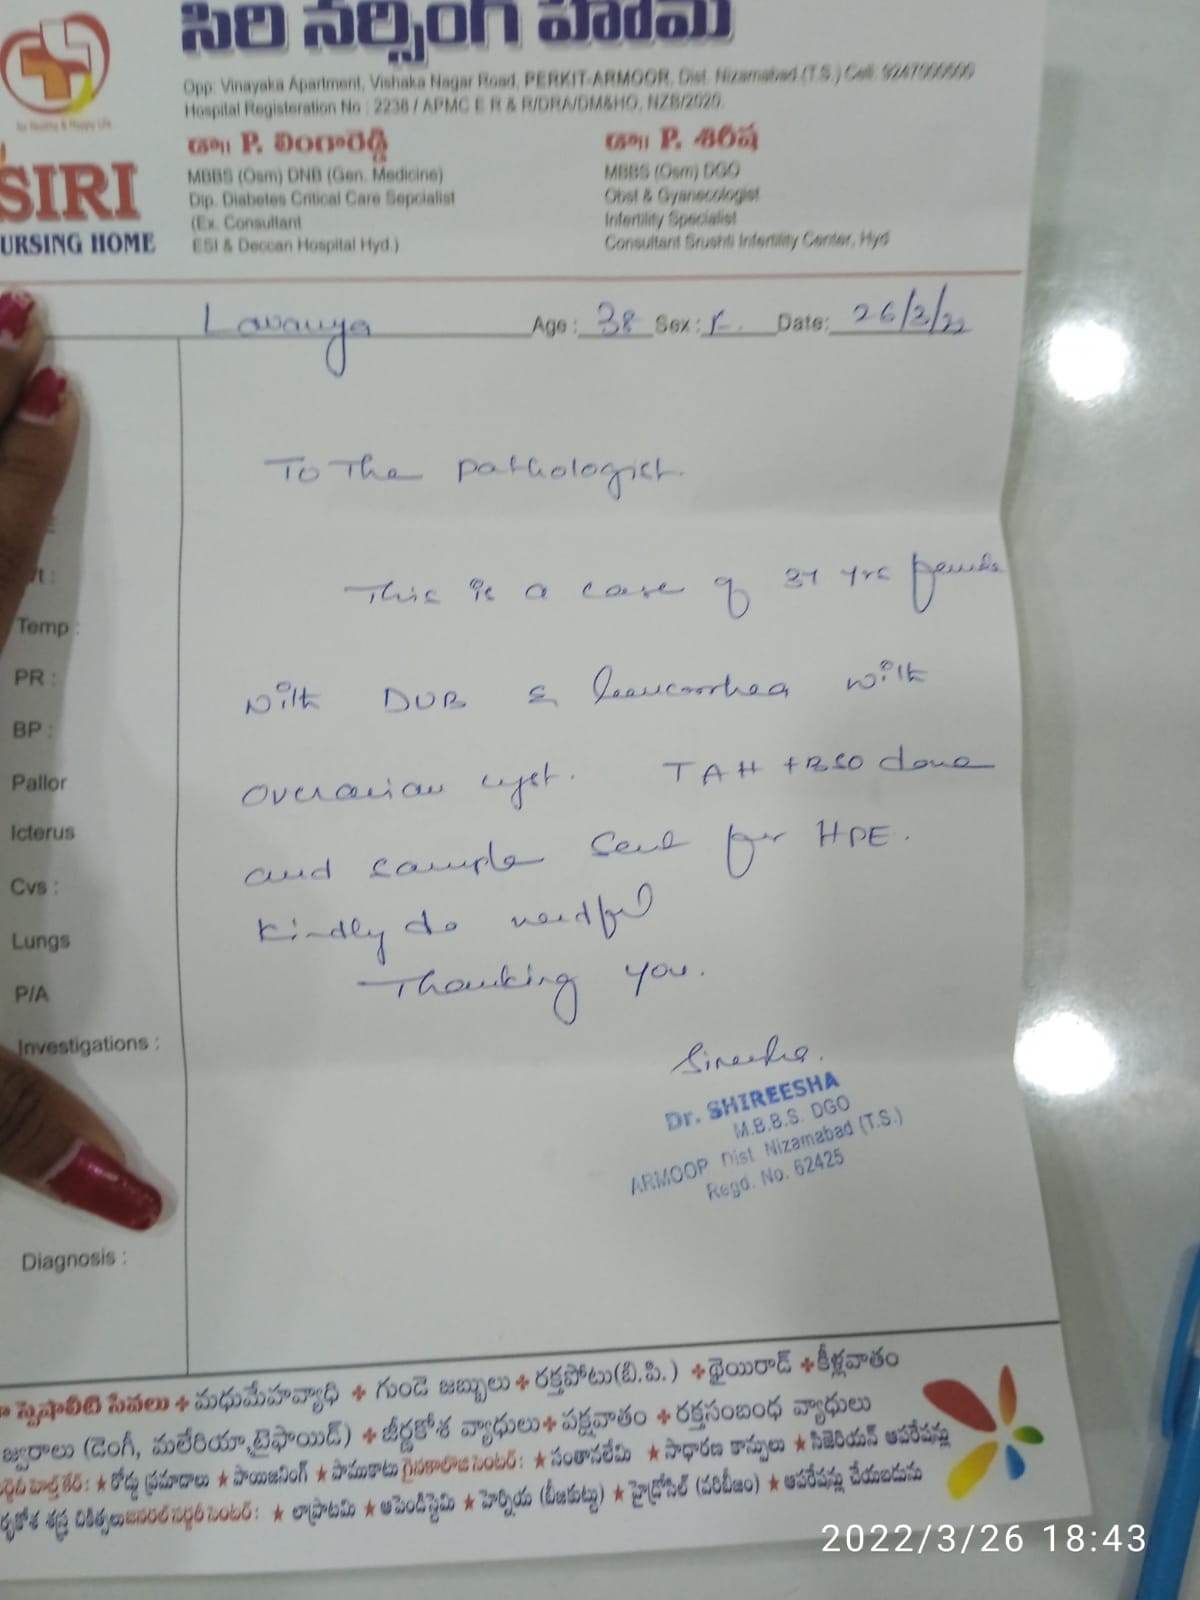 సిరి నర్సింగ్ హోమ్
Opp: Vinayaka Apartment, Vishaka Nagar Road, PERKIT-ARMOOR, Dist. Nizamabad (T.S.) Cell:
Hospital Registeration No : 2238 / APMC E R & R/DRA/DM&HO, NZB/2020.
డా|| P. లింగారెడ్డి
MBBS (Osm) DNB (Gen. Medicine)
Dip. Diabetes Critical Care Sepcialist
(Ex. Consultant
ESI & Deccan Hospital Hyd.)
డా|| P. శిరీష
MBBS (Osm) DGO
Obst & Gyanecologist
Infertility Specialist
Consultant Srushti Infertility Center, Hyd
SIRI
URSING HOME
Lavanya Age : 38 Sex : F. Date: 26/3/22
To The pathologist.
This is a case of yrs female
with DUB & leucorrhea with
overarian cyst. TAH + BSO done
and sample sent for HPE.
kindly do needful
Thanking you.
Sireesha.
Dr. SHIREESHA
M.B.B.S. DGO
ARMOOR Dist. Nizamabad (T.S.)
Regd. No. 62425
t :
Temp :
PR :
BP :
Pallor
Icterus
Cvs :
Lungs
P/A
Investigations :
Diagnosis :
స్పెషాలిటి సేవలు + మధుమేహవ్యాధి + గుండె జబ్బులు + రక్తపోటు(బి.పి.) + థైయిరాడ్ + కీళ్లవాతం
జ్వరాలు (డెంగీ, మలేరియా,టైఫాయిడ్) + జీర్ణకోశ వ్యాధులు + పక్షవాతం + రక్తసంబంధ వ్యాధులు
★ రోడ్డు ప్రమాదాలు ★ పాయిజనింగ్ ★ పాముకాటు గైనకాలాజి సెంటర్: ★ సంతానలేమి ★ సాధారణ కాన్పులు ★ సిజెరియన్ ఆపరేషన్లు
శస్త్ర చికిత్సలు జనరల్ సర్జరీ సెంటర్: ★ లాప్రాటమి ★ అపెండిస్టైమి ★ హెర్నియ (బీజకుట్టు) ★ హైడ్రోసిల్ (వరిబీజం) ★ ఆపరేషన్లు చేయబడును
2022/3/26 18:43